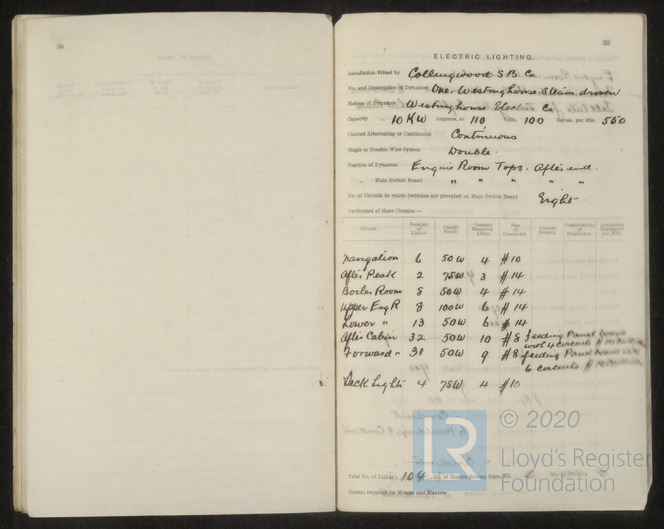 34
35
ELECTRIC LIGHTING.
Installation fitted by Collingwood S B. Co.
No. and Description of Dynamos One. Westinghouse Steam driven
Makers of Dynamos Westinghouse Electric Co
Capacity 10 KW Amperes, at 110 Volts, 100 Revols. per Min. 550
Current Alternating or Continuous Continuous
Single or Double Wire System Double.
Position of Dynamos Engine Room Tops. After end.
" Main Switch Board " " " " "
No. of Circuits to which Switches are provided on Main Switch Board Eight
Particulars of these Circuits:—
Circuit. Number of Lights. Candle Power. Current Required, Amps. Size of Conductor. Current Density. Conductivity of Conductor. Insulation Resistance per Mile.
Navigation 6 50 W 4 # 10
After Peak 2 75W 3 # 14
Boiler Room 8 50W 4 # 14
Upper Eng R 8 100 W 6 # 14
Lower " 13 50W 6 # 14
After Cabin 32 50W 10 # 8 feeding Panel
with 4 circuits #
Forward " 31 50W 9 # 8 feeding Panel
6 circuits #
Deck Lights 4 75W 4 # 10
Total No. of Lights 104
Current required for Motors and Heaters
LR
© 2020
Lloyd's Register
Foundation